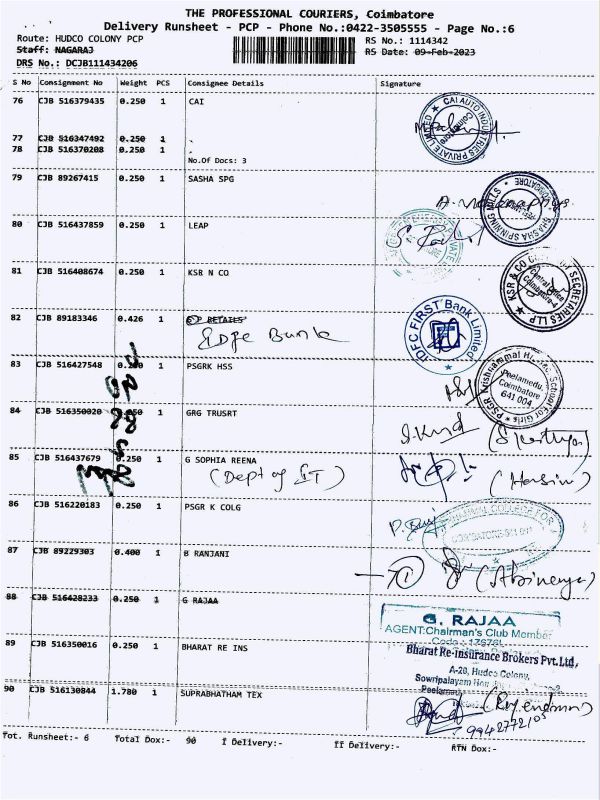 THE PROFESSIONAL COURIERS, Coimbatore
Delivery Runsheet - PCP - Phone No.:0422-3505555 - Page No.:6
Route: HUDCO COLONY PCP RS No.: 1114342
Staff: NAGARAJ RS Date: 09-Feb-2023
DRS No.: DCJB111434206
S No Consignment No Weight PCS Consignee Details Signature
76 CJB 516379435 0.250 1 CAI
CAI AUTO INDUSTRIES PRIVATE LIMITED
Coimbatore
77 CJB 516347492 0.250 1
78 CJB 516370208 0.250 1 .
No.Of Docs: 3
79 CJB 89267415 0.250 1 SASHA SPG
80 CJB 516437859 0.250 1 LEAP
81 CJB 516408674 0.250 1 KSR N CO
KSR & CO COMPANY SECRETARIES LLP
Central Office
Coimbatore-4
82 CJB 89183346 0.426 1 S P RETAILS
IDFC Bank
IDFC FIRST Bank Limited
83 CJB 516427548 0.250 1 PSGRK HSS
Peelamedu,
Coimbatore
641 004.
84 CJB 516350020 0.250 1 GRG TRUSRT
85 CJB 516437679 0.250 1 G SOPHIA REENA
(Dept of IT)
86 CJB 516220183 0.250 1 PSGR K COLG
87 CJB 89229303 0.400 1 B RANJANI
(Abinaya)
88 CJB 516428233 0.250 1 G RAJAA
G. RAJAA
AGENT:Chairman's Club Member
89 CJB 516350016 0.250 1 BHARAT RE INS
Bharat Re-insurance Brokers Pvt.Ltd,
A-20, Hudco Colony,
Sowripalayam
Peelamedu
90 CJB 516130844 1.780 1 SUPRABHATHAM TEX
(Rajendran)
9942772105
Tot. Runsheet:- 6 Total Dox:- 90 I Delivery:- II Delivery:- RTN Dox:-